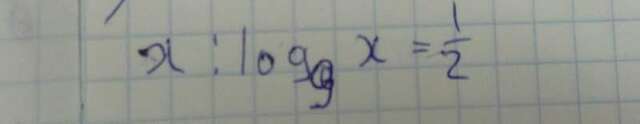 x : log₉ x = 1/2